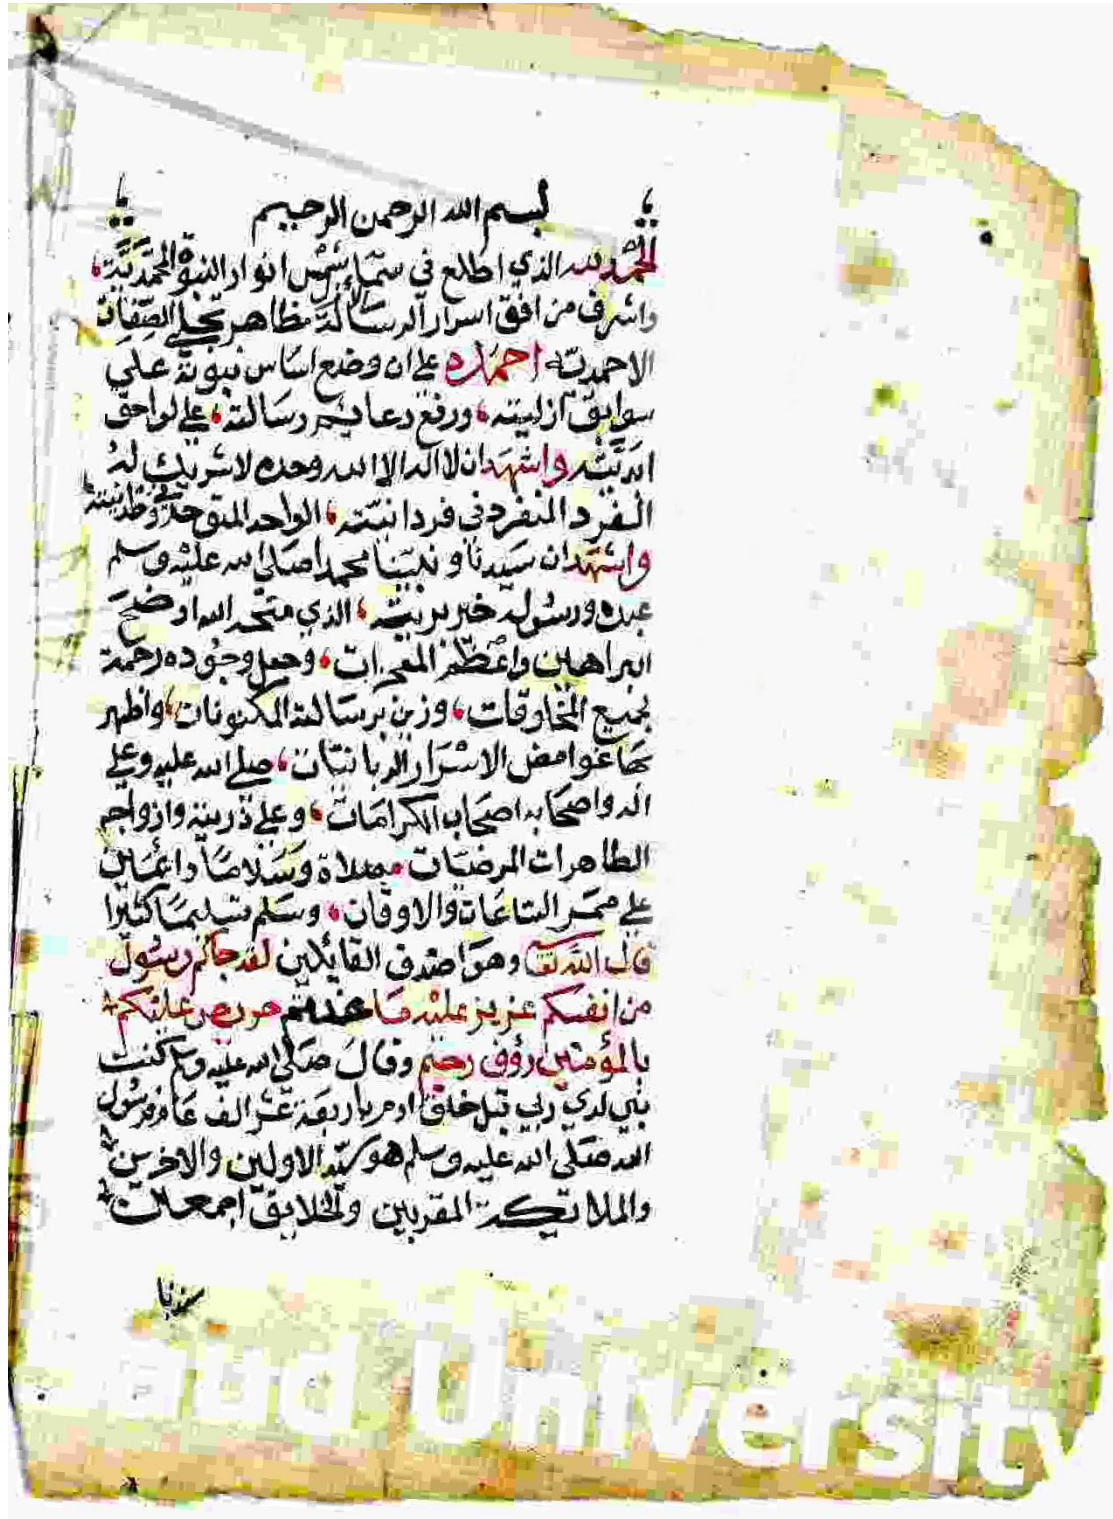 بسم الله الرحمن الرحيم
الحمد لله الذي اطلع في سماء شمس انوار النبوة المحمدية
واشرق من افق اسرار الرسالة مظاهر تجلي الصفات
الاحمدية احمده على ان وضع اساس نبوته على
سوابق ازليته ورفع دعايم رسالته على لواحق
ابديته واشهد ان لا اله الا الله وحده لا شريك له
الفرد المنفرد في فردانيته الواحد المتوحد في وحدانيته
واشهد ان سيدنا ونبينا محمدا صلى الله عليه وسلم
عبده ورسوله خير بريته الذي منحه الله اوضح
البراهين واعظم المعجزات وجعل وجوده رحمة
لجميع المخلوقات وزين برسالته المكنونات واظهر
بها غوامض الاسرار الربانيات صلى الله عليه وعلى
اله واصحابه اصحاب الكرامات وعلى ذريته وازواجه
الطاهرات المرضيات صلاة وسلاما دائمين
على ممر الساعات والاوقات وسلم تسليما كثيرا
قال الله تعالى وهو اصدق القائلين لقد جاكم رسول
من انفسكم عزيز عليه ما عنتم حريص عليكم
بالمؤمنين رؤف رحيم وقال صلى الله عليه وسلم كنت
بين يدي ربي قبل خلق ادم باربعة عشر الف عام فرسول
الله صلى الله عليه وسلم هو سيد الاولين والاخرين
والملائكة المقربين والخلايق اجمعين
سيدنا
aud University